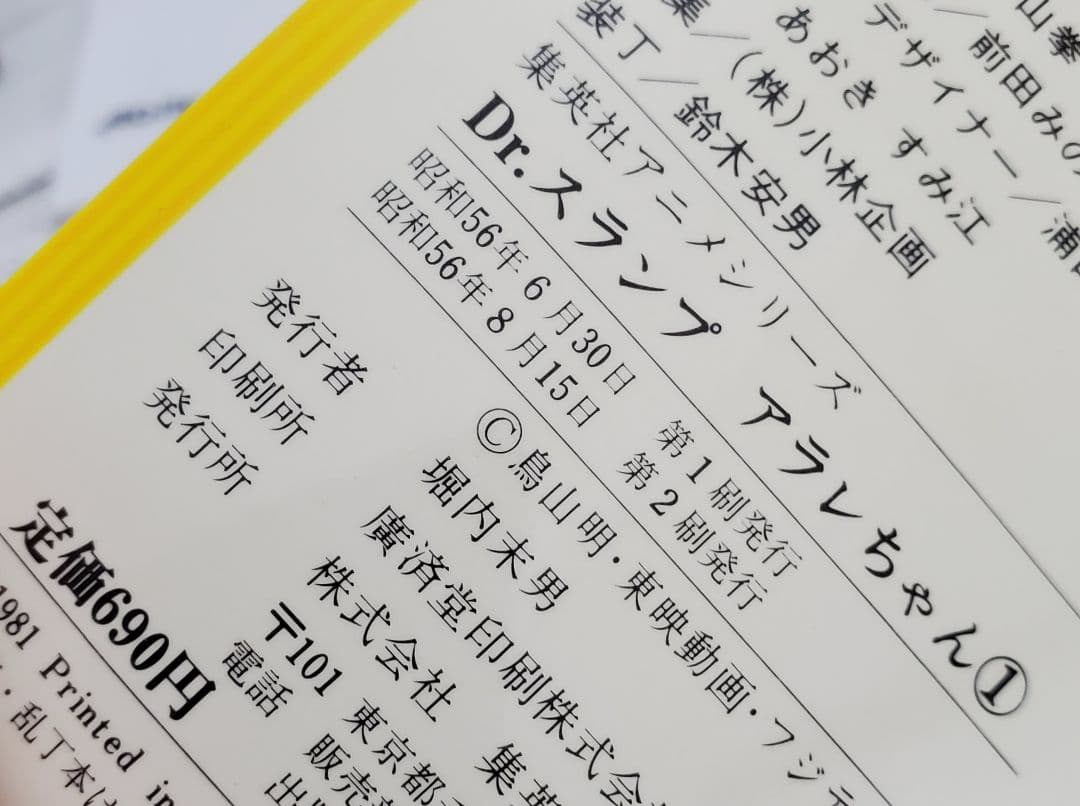 山拳
前田みの
デザイナー／浦田
あおき すみ江
集／(株)小林企画
装丁／鈴木安男
集英社アニメシリーズ
Dr.スランプ アラレちゃん①
昭和56年 6月30日 第1刷発行
昭和56年 8月15日 第2刷発行
©鳥山明・東映動画・フジテ
発行者 堀内末男
印刷所 廣済堂印刷株式会
発行所 株式会社 集英
〒101 東京都
電話 販売
出
定価690円
1981 Printed in
・乱丁本は